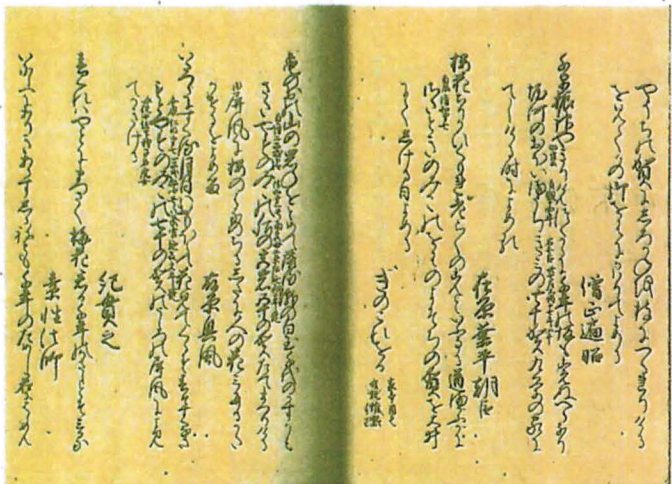 やそちの賀にしろかねを杖につくりける
をみてかの御をはにかはりてよみける
僧正遍昭
千早振神やきりけんつくからに千年の坂もこえぬへらなり
堀河のおほいまうちきみの四十賀九条の家に
てしける時によめる
在原業平朝臣
桜花ちりかひくもれ老らくのこんといふなる道まかふかに
さたときのみこのをはのよそちの賀を大井
にてしける日よめる
きのこれをか
亀の尾の山の岩ねをとめておつる滝の白玉千世のかすかも
さたやすのみこのきさいの宮の五十の賀たてまつりける
御屏風に桜の花のちるしたに人の花みたる
かたかけるをよめる
在原興風
いたつらにすくす月日はおもほえて花みてくらす春そすくなき
もとやすのみこの七十の賀のうしろの屏風によみ
てかきける
紀貫之
春くれはやとにまつさく梅花君か千年のかさしとそみる
素性法師
いにしへにありきあらすはしらねとも千年のためし君にはしめん